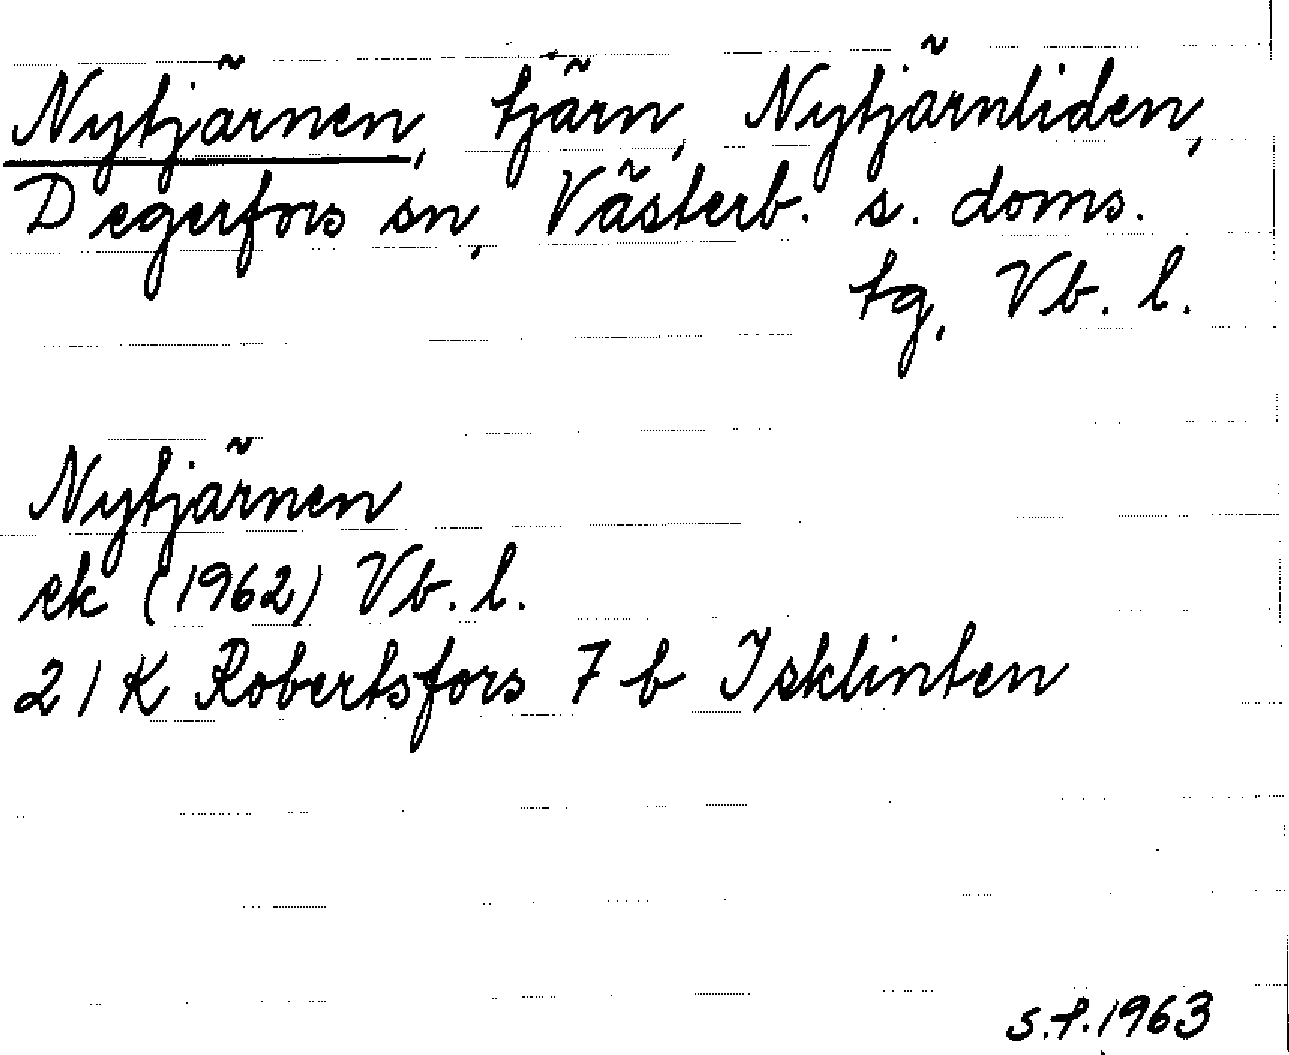 Nytjärnen, tjärn, Nytjärnliden,
Degerfors sn, Västerb. s. doms.
tg, Vb. l.
Nytjärnen
ek (1962) Vb. l.
21 K Robertsfors 7 b Isklinten
s.f. 1963